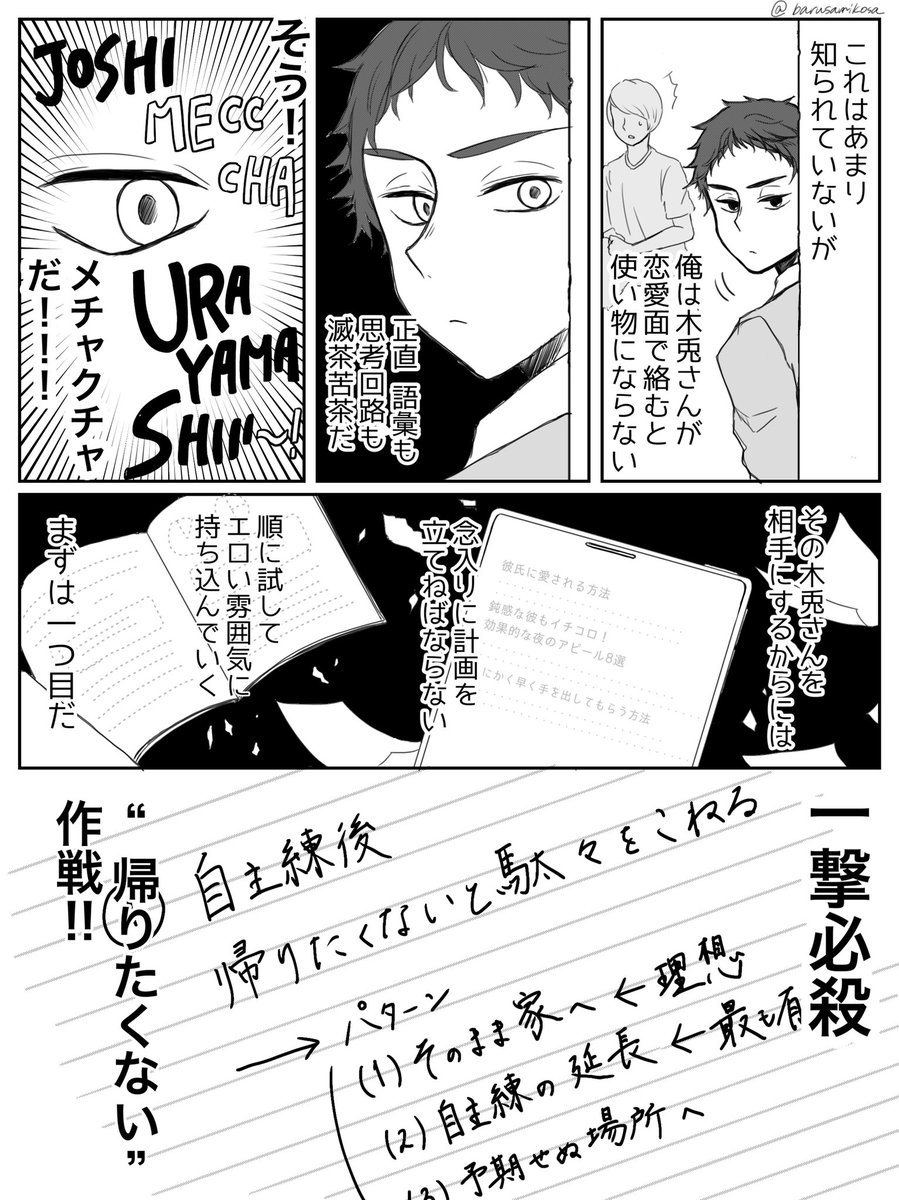 @barusamikosa
これはあまり
知られていないが
俺は木兎さんが
恋愛面で絡むと
使い物にならない
正直 語彙も
思考回路も
滅茶苦茶だ
そう!
JOSHI
MECC
CHA
URA
YAMA
SHIII~!
メチャクチャ
だ!!!
その木兎さんを
相手にするからには
彼氏に愛される方法
鈍感な彼もイチコロ!
効果的な夜のアピール8選
にかく早く手を出してもらう方法
念入りに計画を
立てねばならない
順に試して
エロい雰囲気に
持ち込んでいく
まずは一つ目だ
一撃必殺
“帰りたくない”
作戦!!
自主練後
帰りたくないと駄々をこねる
→パターン
(1)そのまま家へ←理想
(2)自主練の延長←最も有
(3)予期せぬ場所へ